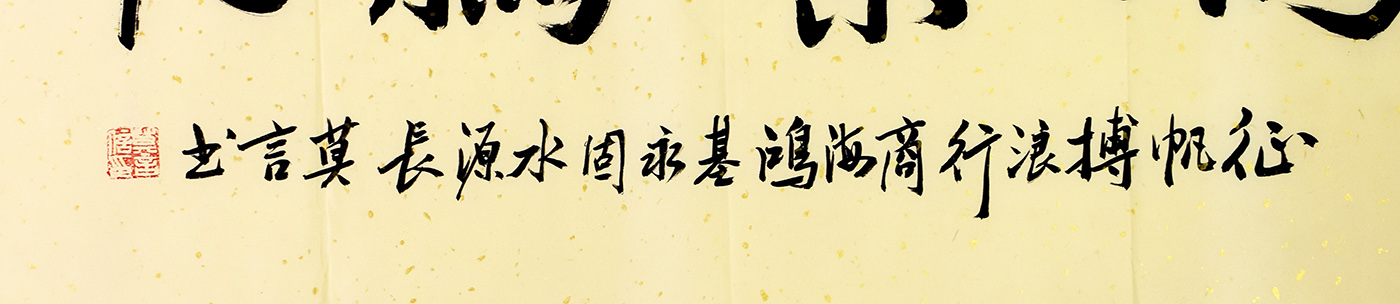 征帆搏浪行商海鴻基永固水源長莫言书